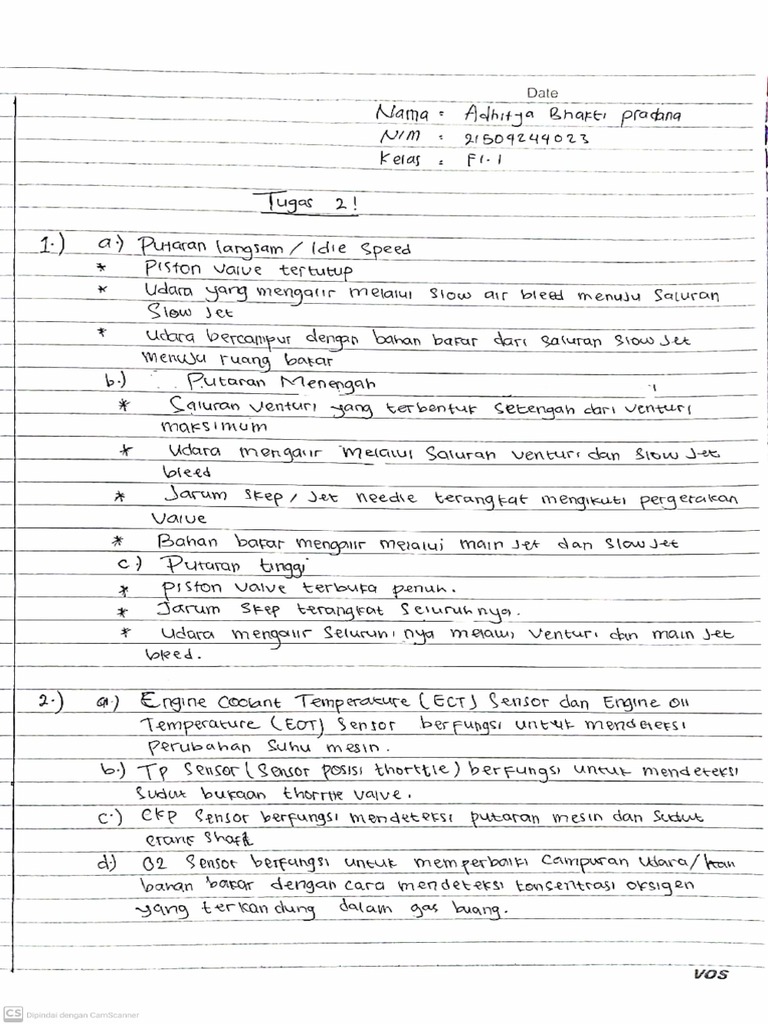 Date
Nama : Adhitya Bhakti Pradana
NIM : 21504244023
Kelas : F1.1
Tugas 2!
1.) a.) Putaran langsam / Idle Speed
* Piston valve tertutup
* Udara yang mengalir melalui slow air bleed menuju saluran
Slow Jet
* Udara bercampur dengan bahan bakar dari saluran slow Jet
menuju ruang bakar
b.) Putaran Menengah
* Saluran venturi yang terbentuk setengah dari venturi
maksimum
* Udara mengalir melalui saluran venturi dan slow Jet
bleed
* Jarum skep / Jet needle terangkat mengikuti pergerakan
Valve
* Bahan bakar mengalir melalui main Jet dan slow Jet
c.) Putaran tinggi
* Piston valve terbuka penuh.
* Jarum skep terangkat seluruhnya.
* Udara mengalir seluruhnya melalui venturi dan main Jet
bleed.
2.) a.) Engine Coolant Temperature (ECT) Sensor dan Engine oil
Temperature (EOT) Sensor berfungsi untuk mendeteksi
perubahan suhu mesin.
b.) TP Sensor (Sensor posisi thorttle) berfungsi untuk mendeteksi
sudut bukaan thorttle valve.
c.) CKP Sensor berfungsi mendeteksi putaran mesin dan sudut
crank shaft
d.) O2 Sensor berfungsi untuk memperbaiki campuran udara /
bahan bakar dengan cara mendeteksi konsentrasi oksigen
yang terkandung dalam gas buang.
VOS
CS Dipindai dengan CamScanner